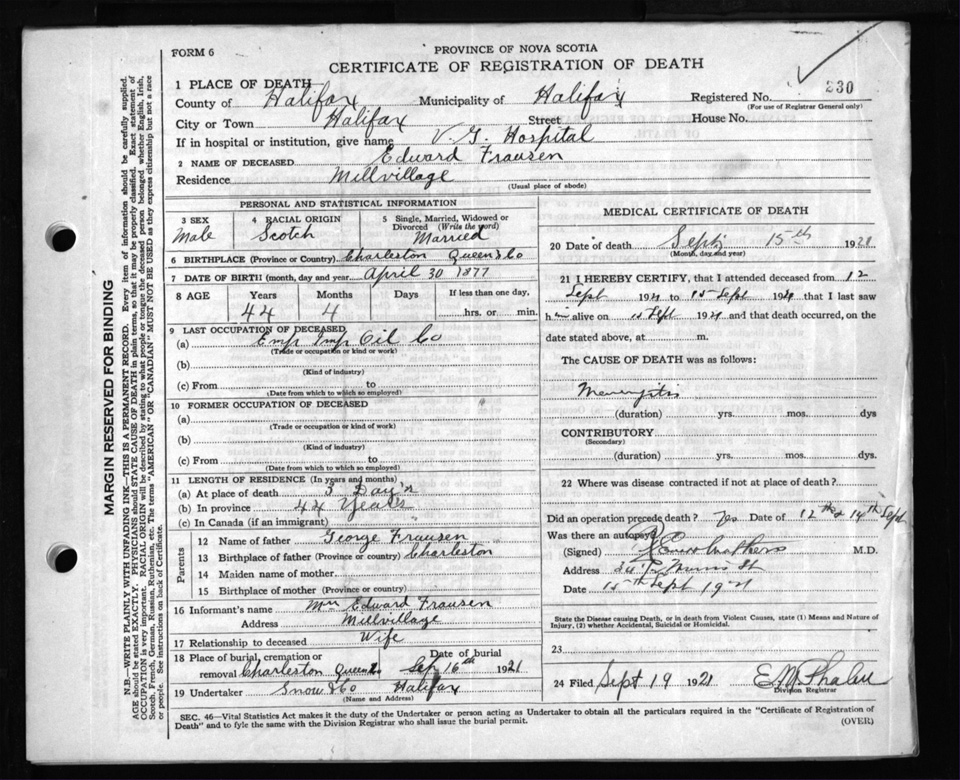 FORM 6
PROVINCE OF NOVA SCOTIA
CERTIFICATE OF REGISTRATION OF DEATH
1 PLACE OF DEATH
County of Halifax Municipality of Halifax Registered No. 230
(For use of Registrar General only)
City or Town Halifax Street House No.
If in hospital or institution, give name V. G. Hospital
2 NAME OF DECEASED Edward Frausen
Residence Millvillage
(Usual place of abode)
PERSONAL AND STATISTICAL INFORMATION
3 SEX Male
4 RACIAL ORIGIN Scotch
5 Single, Married, Widowed or Divorced (Write the word) Married
6 BIRTHPLACE (Province or Country) Charleston Queens Co
7 DATE OF BIRTH (month, day and year) April 30 1877
8 AGE Years Months Days If less than one day,
44 4 hrs. or min.
9 LAST OCCUPATION OF DECEASED
(a) Emp Imp Oil Co
(Trade or occupation or kind or work)
(b)
(Kind of industry)
(c) From to
(Date from which to which so employed)
10 FORMER OCCUPATION OF DECEASED
(a)
(Trade or occupation or kind of work)
(b)
(Kind of industry)
(c) From to
(Date from which to which so employed)
11 LENGTH OF RESIDENCE (In years and months)
(a) At place of death 3 Day's
(b) In province 44 Years
(c) In Canada (if an immigrant)
Parents
12 Name of father George Frausen
13 Birthplace of father (Province or country) Charleston
14 Maiden name of mother
15 Birthplace of mother (Province or country)
16 Informant's name Mrs Edward Frausen
Address Millvillage
17 Relationship to deceased Wife
18 Place of burial, cremation or removal Charleston Queens Date of burial Sep 16th 1921
19 Undertaker Snow & Co Halifax
(Name and Address)
MEDICAL CERTIFICATE OF DEATH
20 Date of death Sept 15th 1921
(Month, day and year)
21 I HEREBY CERTIFY, that I attended deceased from 12
Sept 1921 to 15 Sept 1921 that I last saw
him alive on 15 Sept 1921 and that death occurred, on the
date stated above, at m.
The CAUSE OF DEATH was as follows:
Meningitis
(duration) yrs. mos. dys
CONTRIBUTORY
(Secondary)
(duration) yrs. mos. dys.
22 Where was disease contracted if not at place of death?
Did an operation precede death? Yes Date of 12th & 14th Sept
Was there an autopsy?
(Signed) M.D.
Address Morris St
Date 15th Sept 1921
State the Disease causing Death, or in death from Violent Causes, state (1) Means and Nature of
Injury, (2) whether Accidental, Suicidal or Homicidal.
23
24 Filed Sept 19 1921 Phalen
Division Registrar
SEC. 46—Vital Statistics Act makes it the duty of the Undertaker or person acting as Undertaker to obtain all the particulars required in the "Certificate of Registration of
Death" and to fyle the same with the Division Registrar who shall issue the burial permit.
(OVER)
MARGIN RESERVED FOR BINDING
N.B.—WRITE PLAINLY WITH UNFADING INK—THIS IS A PERMANENT RECORD. Every item of information should be carefully supplied.
AGE should be stated EXACTLY. PHYSICIANS should STATE CAUSE OF DEATH in plain terms, so that it may be properly classified. Exact statement of
OCCUPATION is very important. RACIAL ORIGIN will be described by stating to what people or tongue the deceased person belonged whether English, Irish,
Scotch, French, German, Russian, Ruthenian, etc. The terms "AMERICAN" OR "CANADIAN" MUST NOT BE USED as they express citizenship but not a race
or people. See instructions on back of Certificate.